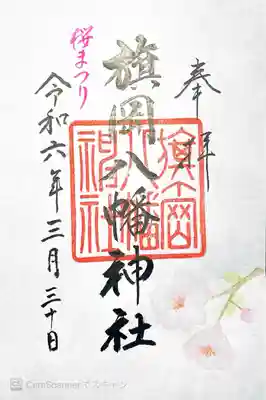 奉拝
旗岡八幡神社
桜まつり
令和六年三月三十日
CamScannerでスキャン